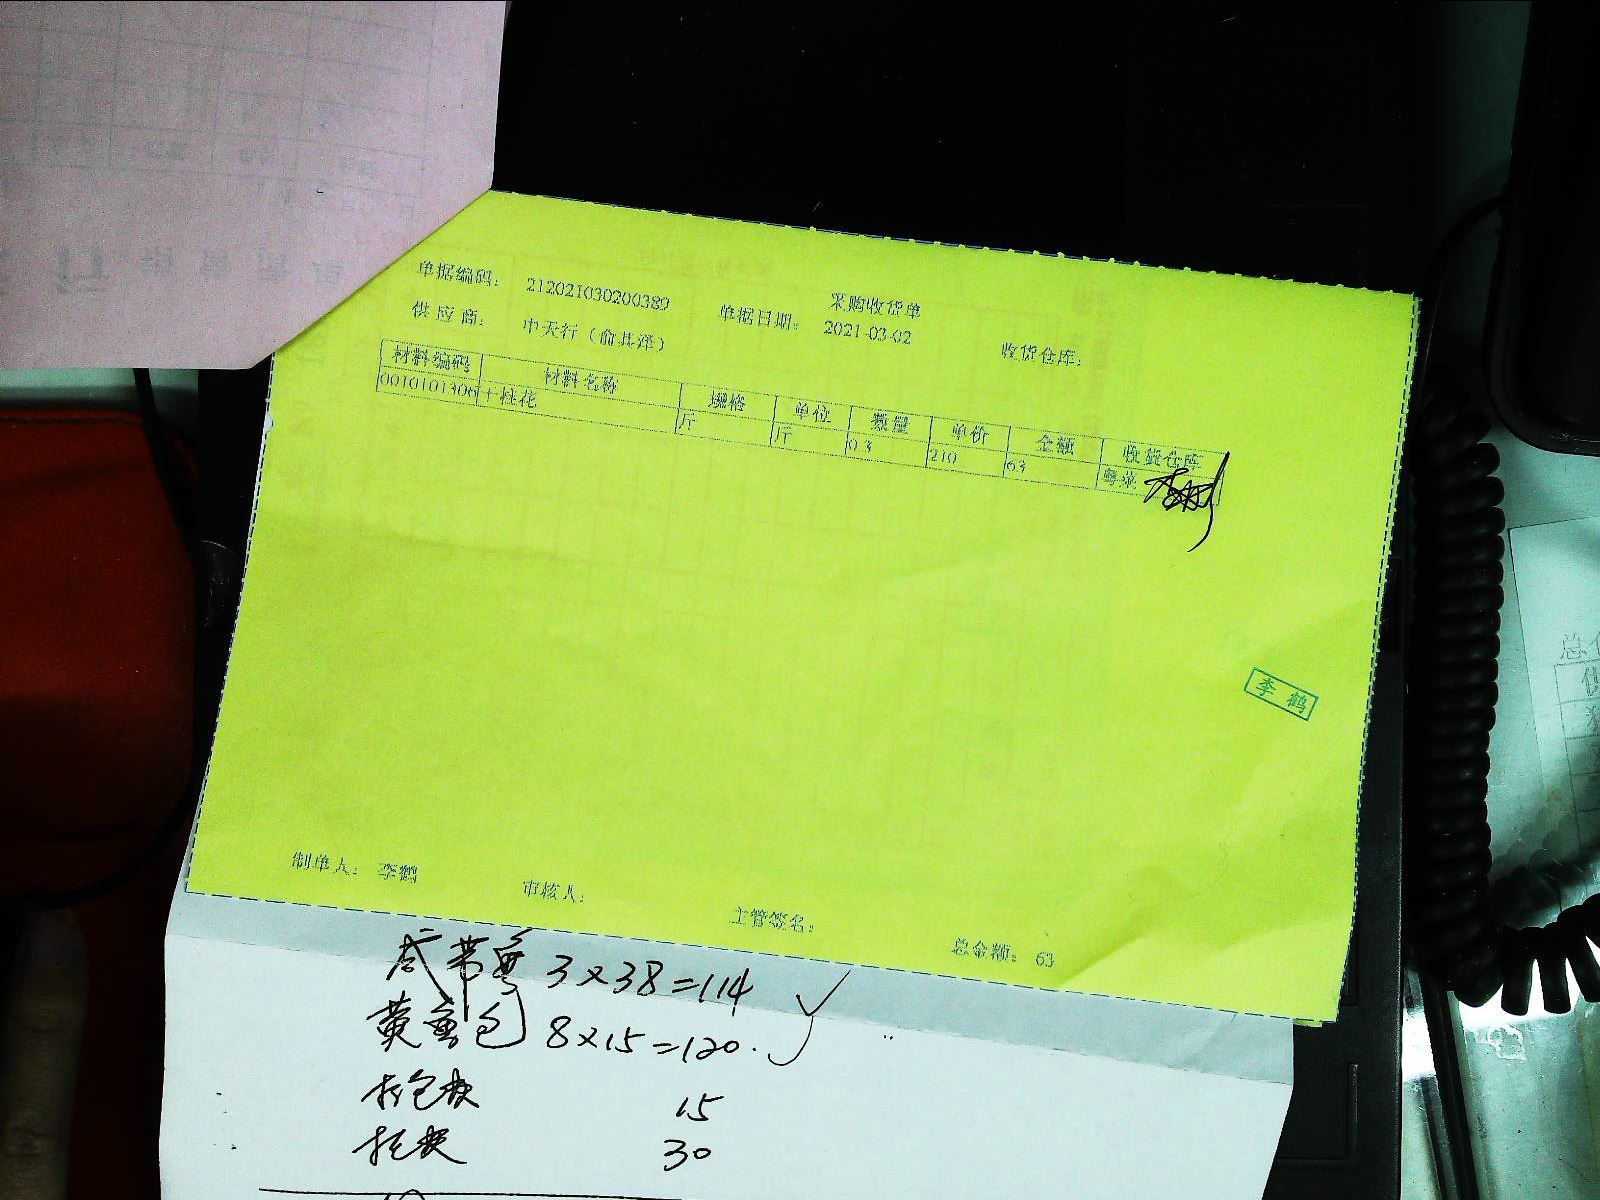 采购收货单
单据编码： 212021030200389 单据日期： 2021-03-02 收货仓库：
供应商： 中天行（俞其洋）
材料编码 材料名称 规格 单位 数量 单价 金额 收货仓库
0010101306 十柱花 斤 斤 0.3 210 63 粤菜
李鹤
制单人： 李鹤 审核人： 主管签名： 总金额： 63
3×38=114
黄 包 8×15=120
打包费 15
托费 30
总